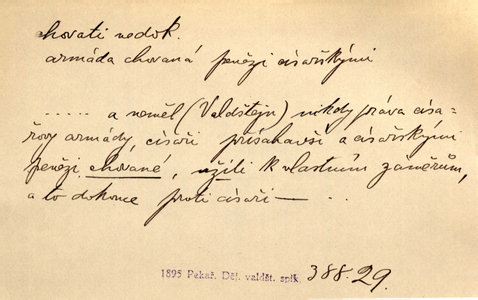 chovati nedok.
armáda chovaná penězi císařskými
..... a neměl (Valdštejn) nikdy práva císa-
řovy armády, císaři přísahavší a císařskými
penězi chované, užíti k vlastním záměrům,
a to dokonce proti císaři — ...
1895 Pekař. Děj. valdšt. spik. 388.29.